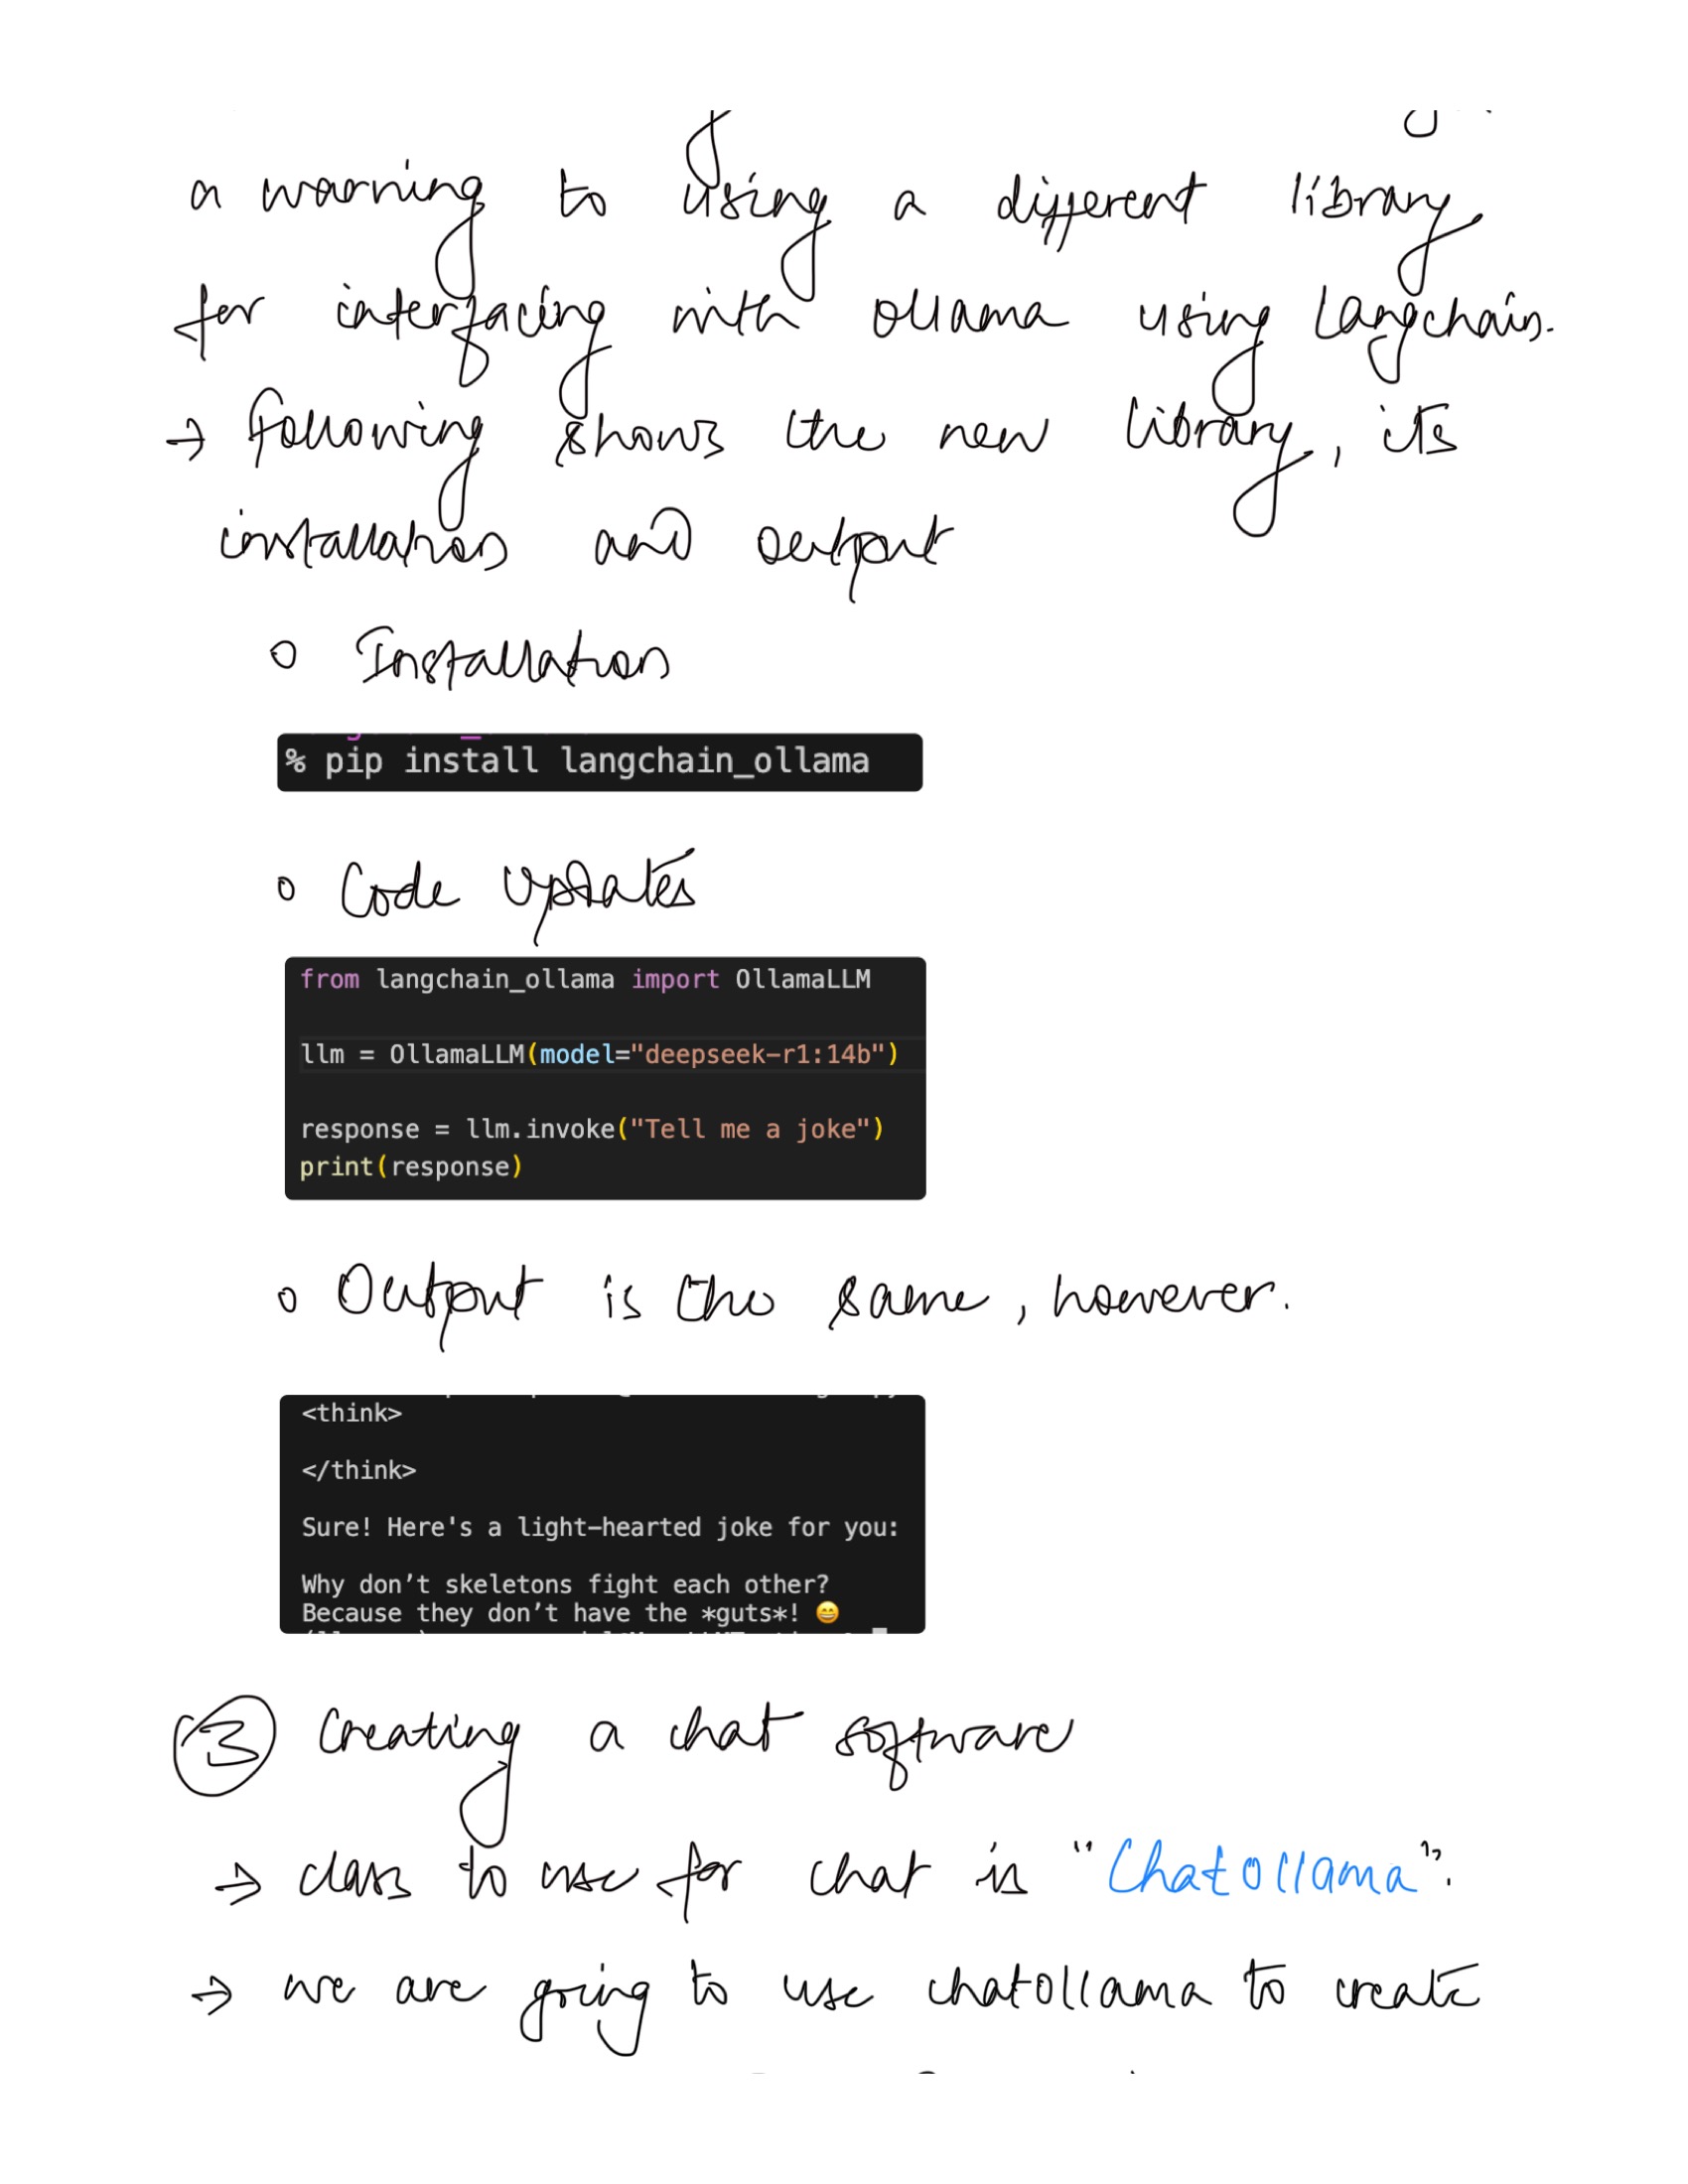 a warning to using a different library
for interfacing with ollama using Langchain.
→ following shows the new library, its
installation and output
o Installation
% pip install langchain_ollama
o Code Updates
from langchain_ollama import OllamaLLM
llm = OllamaLLM(model="deepseek-r1:14b")
response = llm.invoke("Tell me a joke")
print(response)
o Output is the same, however.
<think>
</think>
Sure! Here's a light-hearted joke for you:
Why don't skeletons fight each other?
Because they don't have the *guts*! 😄
③ Creating a chat software
→ class to use for chat is "ChatOllama".
→ we are going to use chatollama to create